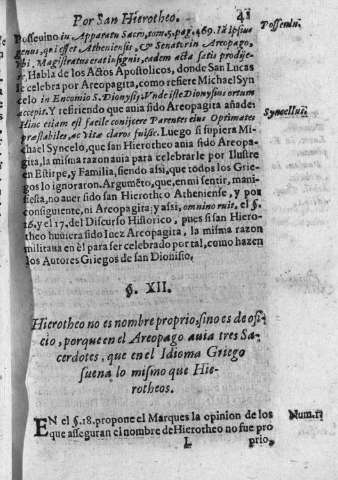 Por San Hierotheo. 41
Posseuino in Apparatu Sacro, tom. 5. pag. 469. Ex Ipsius
genus, qui esset Atheniensis, & Senator in Areopago,
vbi Magistratus erat insignis, eadem acta satis prodije-
r. Habla de los Actos Apostolicos, donde San Lucas
le celebra por Areopagita, como refiere Michael Syn
celo in Encomio S. Dionysij: Vnde iste Dionysius ortum
accepit. Y refiriendo que auia sido Areopagita añade:
Hinc etiam est facile conijcere Parentes eius Optimates
præstabiles, ac Vita claros fuisse. Luego si supiera Mi-
chael Syncelo, que san Hierotheo auia sido Areopa-
gita, la misma razon auia para celebrarle por Ilustre
en Estirpe, y Familia, siendo assi, que todos los Grie-
gos lo ignoraron. Argumẽto, que, en mi sentir, mani-
fiesta, no auer sido san Hierotheo Atheniense, y por
consiguiente, ni Areopagita: y assi, omnino ruit, el §.
16. y el 17. del Discurso Historico, pues si san Hiero-
theo huuiera sido Iuez Areopagita, la misma razon
militaua en èl para ser celebrado por tal, como hazen
los Autores Griegos de san Dionisio.
Posseuin.
Syncellus.
§. XII.
Hierotheo no es nombre proprio, sino es de ofi-
cio, porque en el Areopago auia tres Sa-
cerdotes, que en el Idioma Griego
suena lo mismo que Hie-
rotheos.
EN el §. 18. propone el Marques la opinion de los
que asseguran el nombre de Hierotheo no fue pro
Num. 1
L prio,